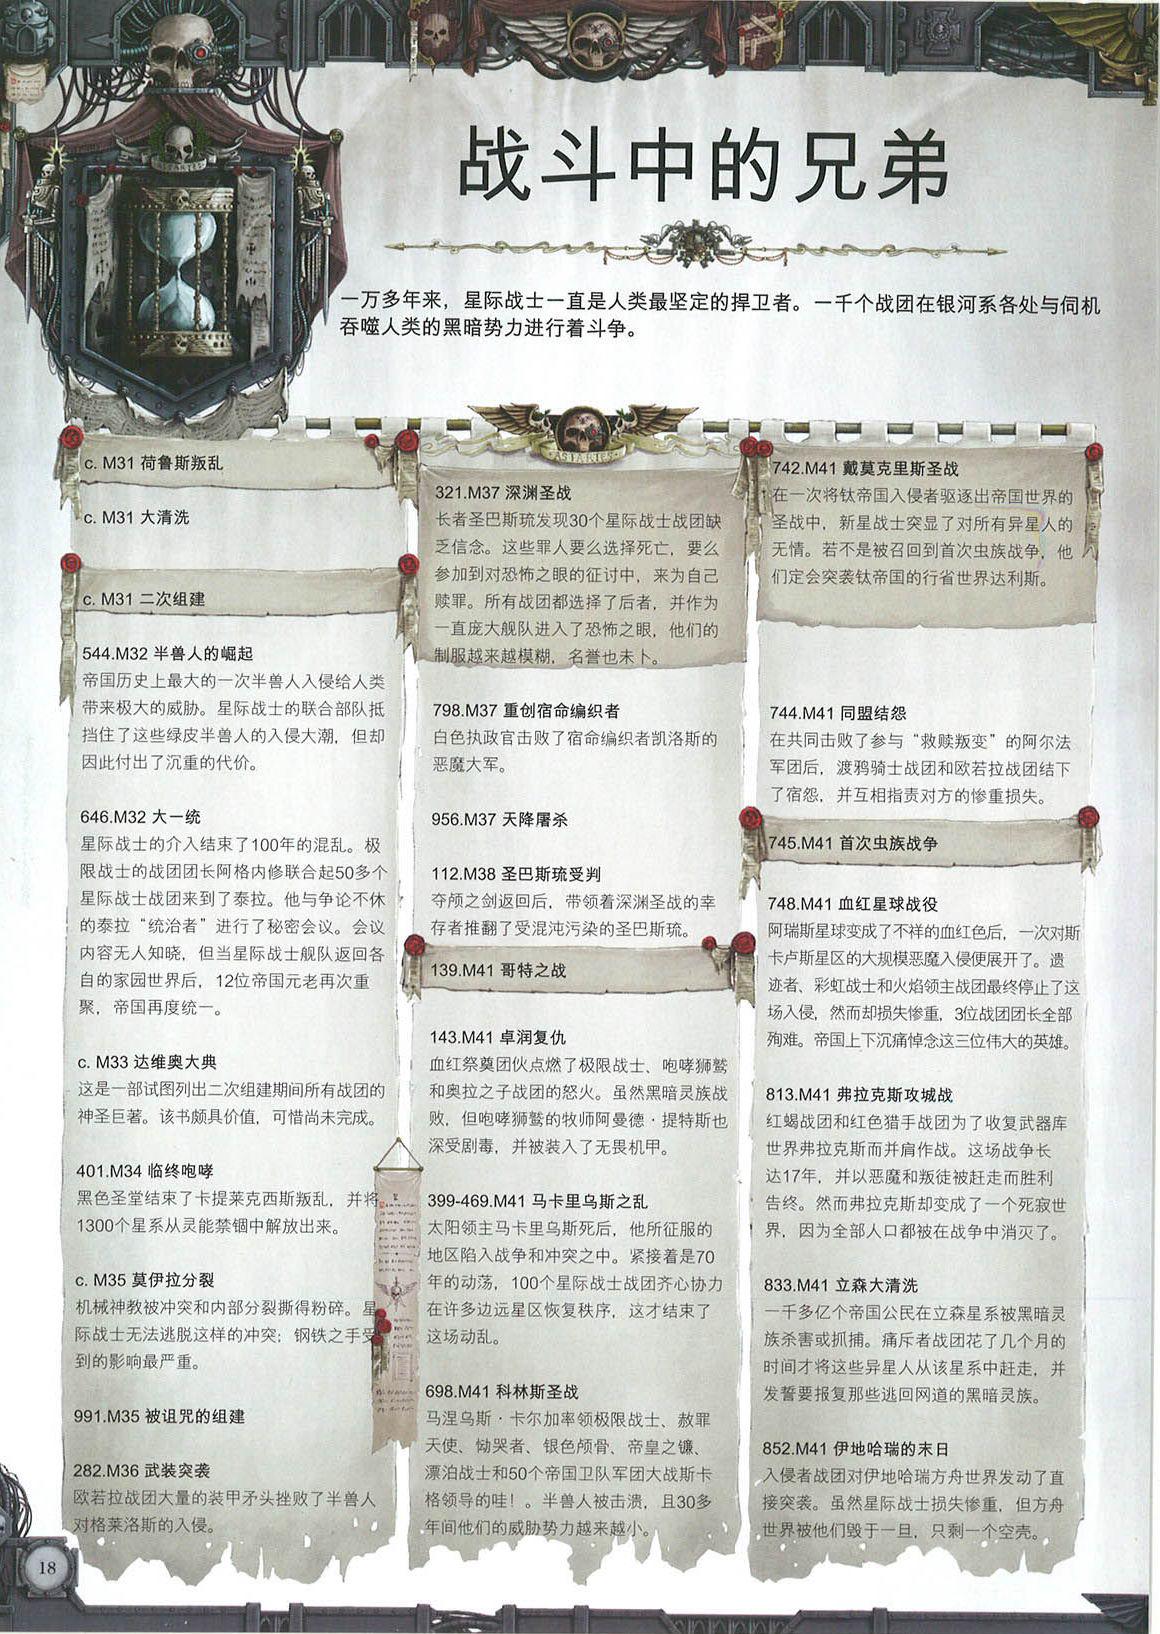 战斗中的兄弟
一万多年来，星际战士一直是人类最坚定的捍卫者。一千个战团在银河系各处与伺机
吞噬人类的黑暗势力进行着斗争。
ASTARTES
c. M31 荷鲁斯叛乱
c. M31 大清洗
c. M31 二次组建
544.M32 半兽人的崛起
帝国历史上最大的一次半兽人入侵给人类
带来极大的威胁。星际战士的联合部队抵
挡住了这些绿皮半兽人的入侵大潮，但却
因此付出了沉重的代价。
646.M32 大一统
星际战士的介入结束了100年的混乱。极
限战士的战团团长阿格内修联合起50多个
星际战士战团来到了泰拉。他与争论不休
的泰拉“统治者”进行了秘密会议。会议
内容无人知晓，但当星际战士舰队返回各
自的家园世界后，12位帝国元老再次重
聚，帝国再度统一。
c. M33 达维奥大典
这是一部试图列出二次组建期间所有战团的
神圣巨著。该书颇具价值，可惜尚未完成。
401.M34 临终咆哮
黑色圣堂结束了卡提莱克西斯叛乱，并将
1300个星系从灵能禁锢中解放出来。
c. M35 莫伊拉分裂
机械神教被冲突和内部分裂撕得粉碎。星
际战士无法逃脱这样的冲突；钢铁之手受
到的影响最严重。
991.M35 被诅咒的组建
282.M36 武装突袭
欧若拉战团大量的装甲矛头挫败了半兽人
对格莱洛斯的入侵。
321.M37 深渊圣战
长者圣巴斯琉发现30个星际战士战团缺
乏信念。这些罪人要么选择死亡，要么
参加到对恐怖之眼的征讨中，来为自己
赎罪。所有战团都选择了后者，并作为
一直庞大舰队进入了恐怖之眼，他们的
制服越来越模糊，名誉也未卜。
798.M37 重创宿命编织者
白色执政官击败了宿命编织者凯洛斯的
恶魔大军。
956.M37 天降屠杀
112.M38 圣巴斯琉受判
夺颅之剑返回后，带领着深渊圣战的幸
存者推翻了受混沌污染的圣巴斯琉。
139.M41 哥特之战
143.M41 卓润复仇
血红祭奠团伙点燃了极限战士、咆哮狮鹫
和奥拉之子战团的怒火。虽然黑暗灵族战
败，但咆哮狮鹫的牧师阿曼德·提特斯也
深受剧毒，并被装入了无畏机甲。
399-469.M41 马卡里乌斯之乱
太阳领主马卡里乌斯死后，他所征服的
地区陷入战争和冲突之中。紧接着是70
年的动荡，100个星际战士战团齐心协力
在许多边远星区恢复秩序，这才结束了
这场动乱。
698.M41 科林斯圣战
马涅乌斯·卡尔加率领极限战士、赦罪
天使、恸哭者、银色颅骨、帝皇之镰、
漂泊战士和50个帝国卫队军团大战斯卡
格领导的哇！。半兽人被击溃，且30多
年间他们的威胁势力越来越小。
742.M41 戴莫克里斯圣战
在一次将钛帝国入侵者驱逐出帝国世界的
圣战中，新星战士突显了对所有异星人的
无情。若不是被召回到首次虫族战争，他
们定会突袭钛帝国的行省世界达利斯。
744.M41 同盟结怨
在共同击败了参与“救赎叛变”的阿尔法
军团后，渡鸦骑士战团和欧若拉战团结下
了宿怨，并互相指责对方的惨重损失。
745.M41 首次虫族战争
748.M41 血红星球战役
阿瑞斯星球变成了不祥的血红色后，一次对斯
卡卢斯星区的大规模恶魔入侵便展开了。遗
迹者、彩虹战士和火焰领主战团最终停止了这
场入侵，然而却损失惨重，3位战团团长全部
殉难。帝国上下沉痛悼念这三位伟大的英雄。
813.M41 弗拉克斯攻城战
红蝎战团和红色猎手战团为了收复武器库
世界弗拉克斯而并肩作战。这场战争长
达17年，并以恶魔和叛徒被赶走而胜利
告终。然而弗拉克斯却变成了一个死寂世
界，因为全部人口都被在战争中消灭了。
833.M41 立森大清洗
一千多亿个帝国公民在立森星系被黑暗灵
族杀害或抓捕。痛斥者战团花了几个月的
时间才将这些异星人从该星系中赶走，并
发誓要报复那些逃回网道的黑暗灵族。
852.M41 伊地哈瑞的末日
入侵者战团对伊地哈瑞方舟世界发动了直
接突袭。虽然星际战士损失惨重，但方舟
世界被他们毁于一旦，只剩一个空壳。
18